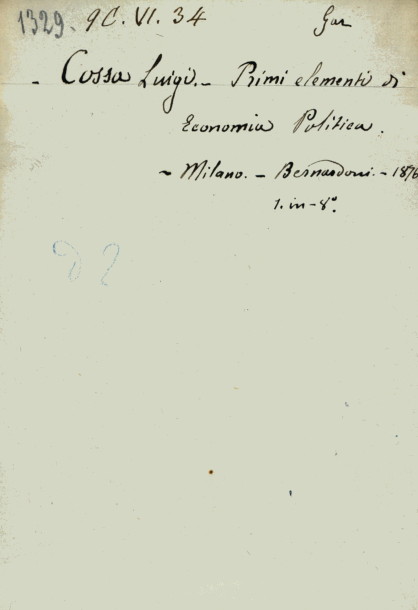 1329. 9C. VI. 34 Gar
- Cossa Luigi. - Primi elementi di
Economia Politica.
- Milano. - Bernardoni. - 1876
1. in-8º.